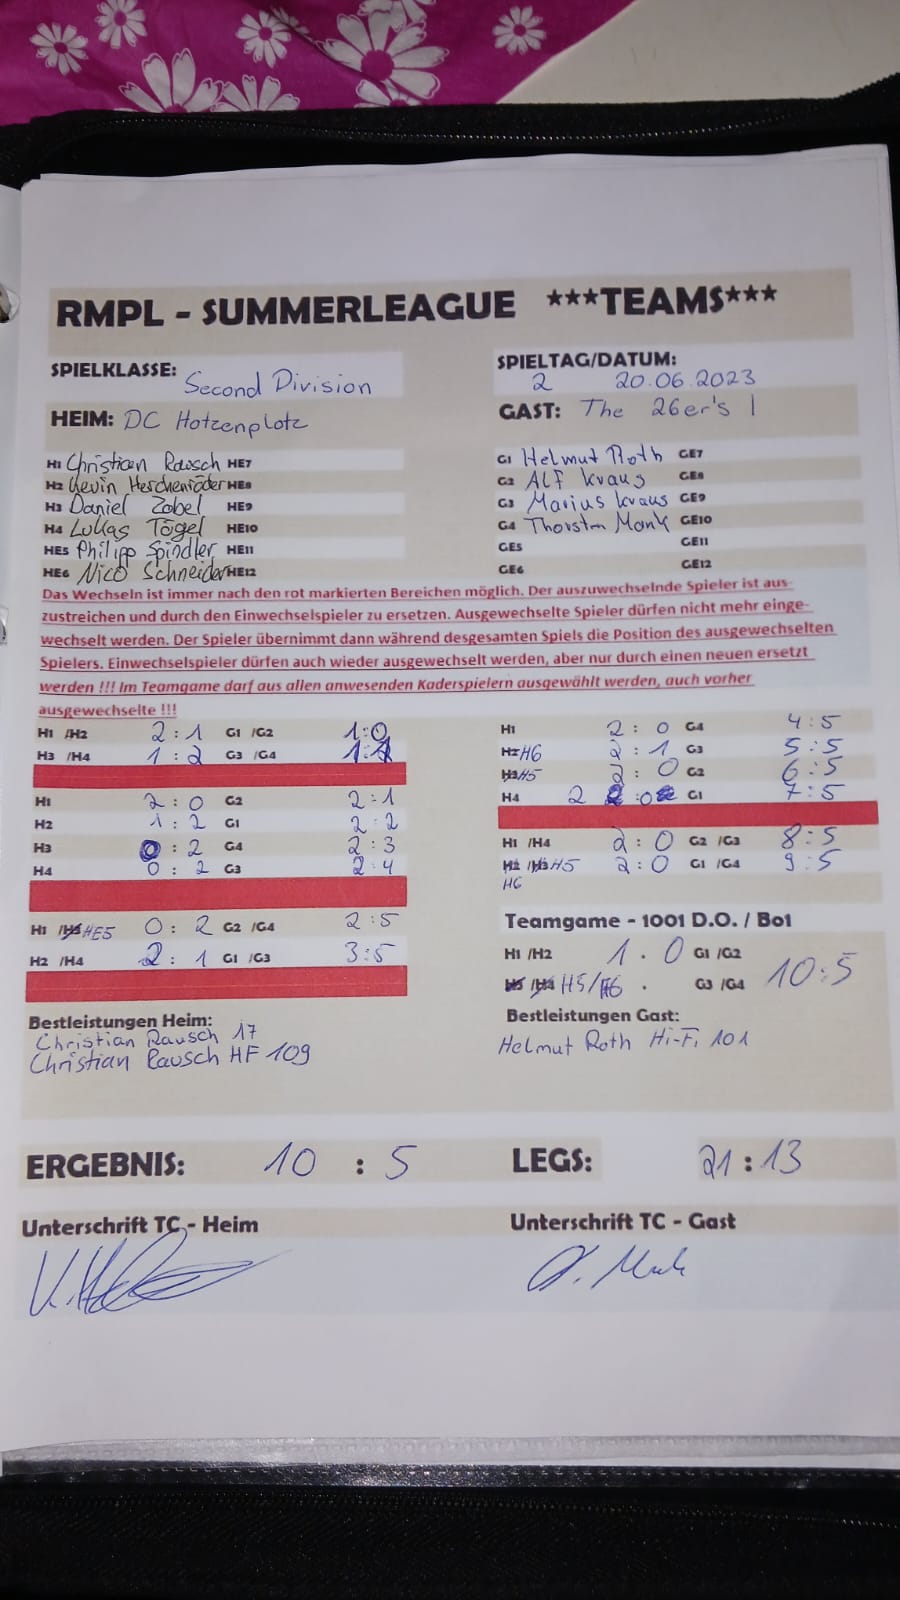 RMPL - SUMMERLEAGUE ***TEAMS***
SPIELKLASSE: Second Division
SPIELTAG/DATUM: 2 20.06.2023
HEIM: DC Hotzenplotz
GAST: The 26er's I
H1 Christian Rausch HE7
H2 Kevin Herchenröder HE8
H3 Daniel Zobel HE9
H4 Lukas Tögel HE10
HE5 Philipp Spindler HE11
HE6 Nico Schneider HE12
G1 Helmut Roth GE7
G2 Alf Kraus GE8
G3 Marius Kraus GE9
G4 Thorsten Monk GE10
GE5 GE11
GE6 GE12
Das Wechseln ist immer nach den rot markierten Bereichen möglich. Der auszuwechselnde Spieler ist aus-
zustreichen und durch den Einwechselspieler zu ersetzen. Ausgewechselte Spieler dürfen nicht mehr einge-
wechselt werden. Der Spieler übernimmt dann während desgesamten Spiels die Position des ausgewechselten
Spielers. Einwechselspieler dürfen auch wieder ausgewechselt werden, aber nur durch einen neuen ersetzt
werden !!! Im Teamgame darf aus allen anwesenden Kaderspielern ausgewählt werden, auch vorher
ausgewechselte !!!
H1 /H2 2:1 G1 /G2 1:0
H3 /H4 1:2 G3 /G4 1:1
H1 2:0 G2 2:1
H2 1:2 G1 2:2
H3 0:2 G4 2:3
H4 0:2 G3 2:4
H1 /H3 HE5 0:2 G2 /G4 2:5
H2 /H4 2:1 G1 /G3 3:5
H1 2:0 G4 4:5
H2 H6 2:1 G3 5:5
H3 H5 2:0 G2 6:5
H4 2:0 G1 7:5
H1 /H4 2:0 G2 /G3 8:5
H2 /H3 H5 2:0 G1 /G4 9:5
H6
Teamgame - 1001 D.O. / Bo1
H1 /H2 1.0 G1 /G2
H3 /H4 H5/H6 . G3 /G4 10:5
Bestleistungen Heim:
Christian Rausch 17
Christian Rausch HF 109
Bestleistungen Gast:
Helmut Roth Hi-Fi 101
ERGEBNIS: 10 : 5
LEGS: 21:13
Unterschrift TC - Heim
Unterschrift TC - Gast